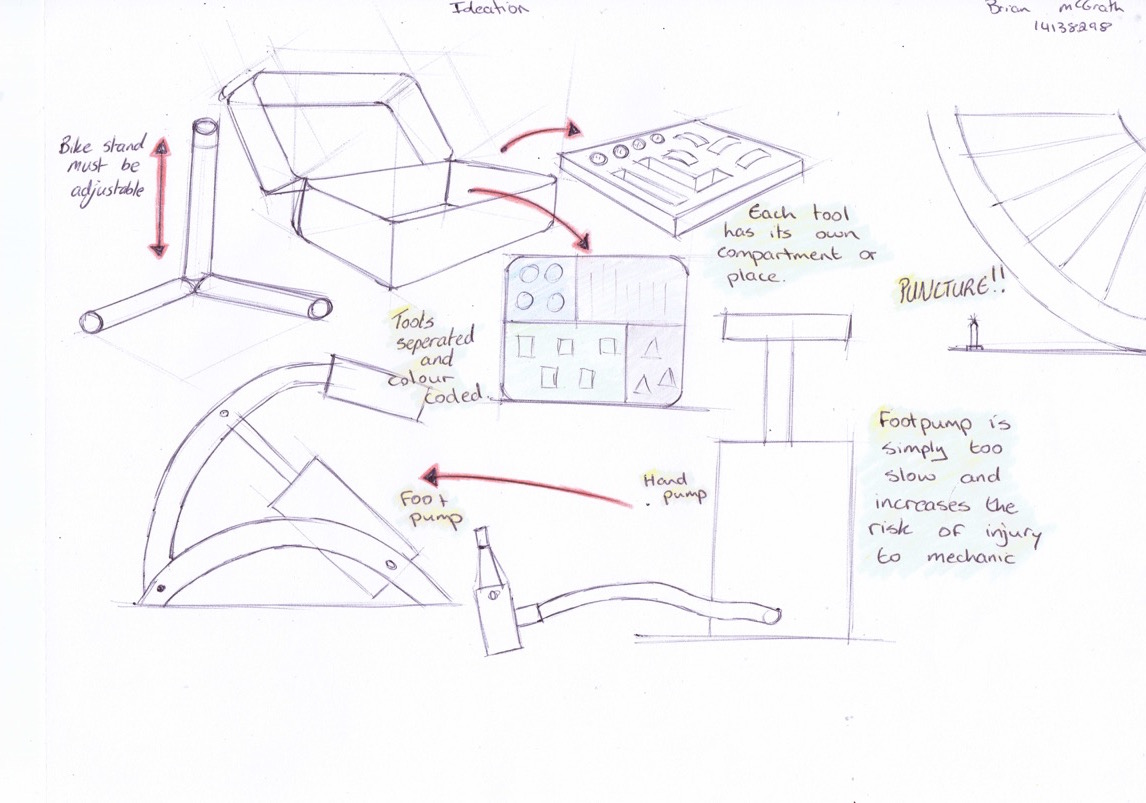 Ideation
Brian McGrath
14138298
Bike stand
must be
adjustable
Each tool
has its own
compartment or
place.
PUNCTURE!!
Tools
seperated
and
colour
coded.
Foot
pump
Hand
pump
Footpump is
simply too
slow and
increases the
risk of injury
to mechanic